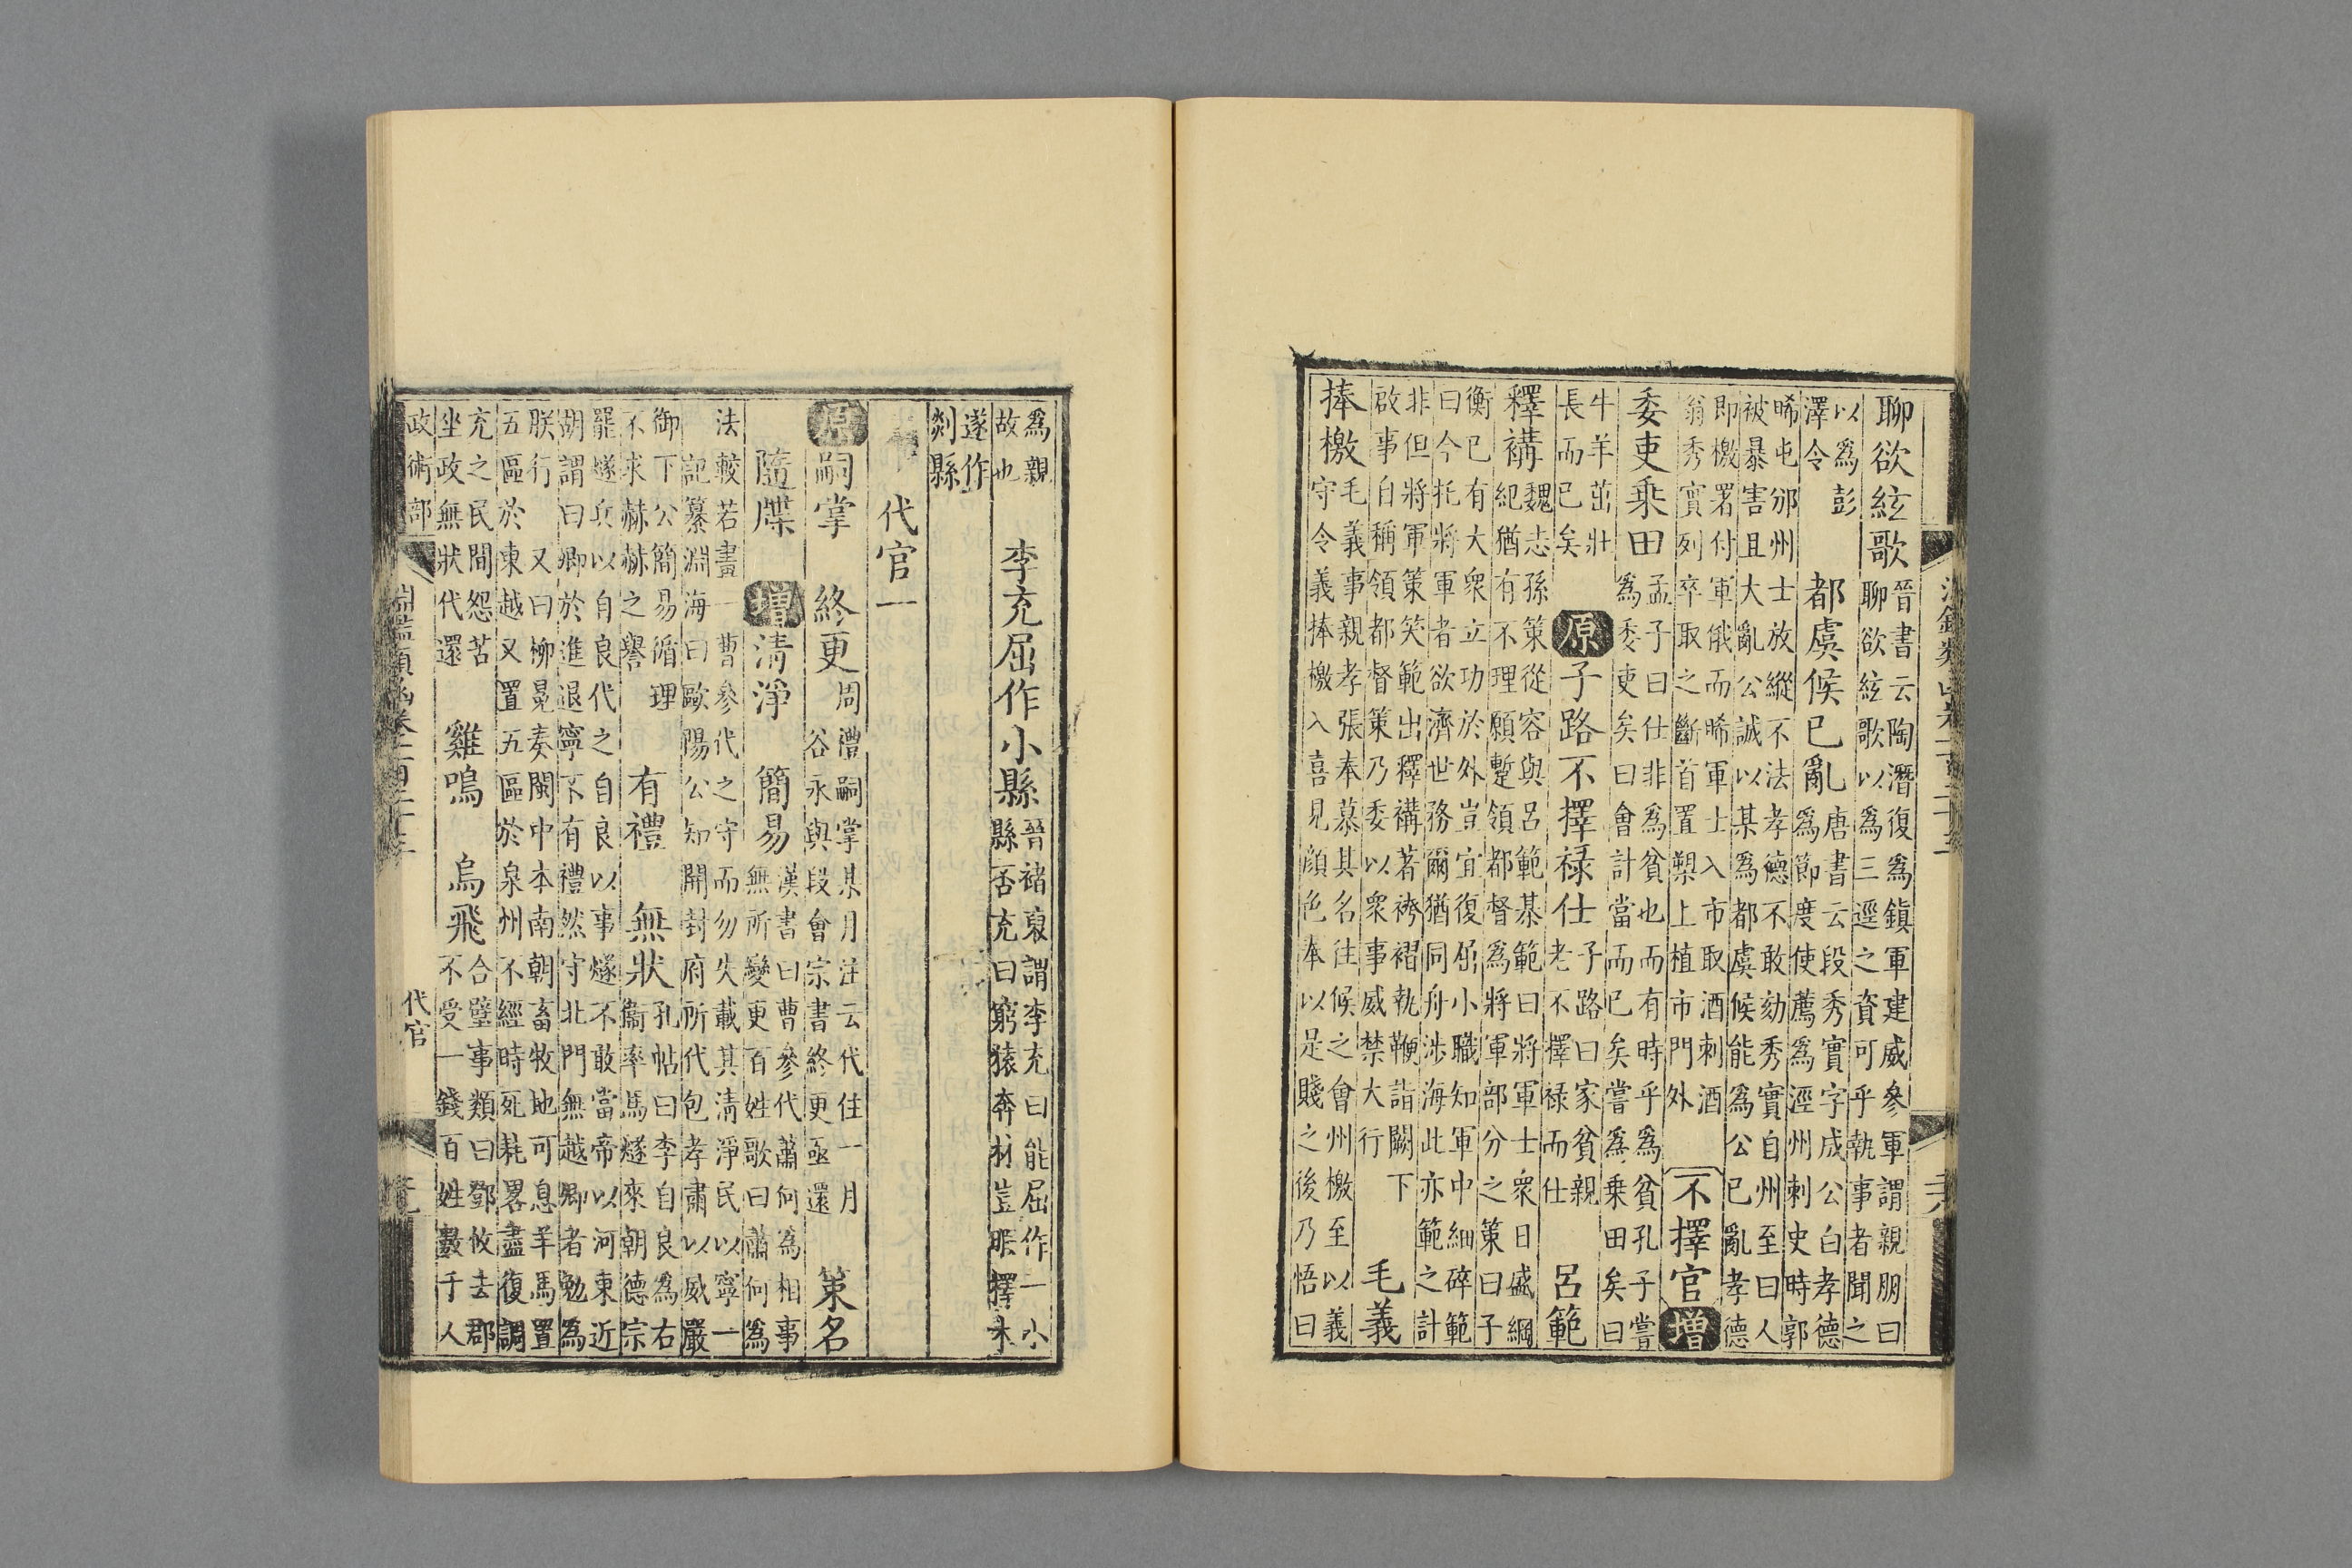 聊欲絃歌
晉書云陶潛復為鎮軍建威參軍謂親朋曰
聊欲絃歌以為三逕之資可乎執事者聞之
以為彭
澤令
都虞候已亂
唐書云段秀實字成公白孝德
為節度使薦為涇州刺史時郭
晞屯邠州士放縱不法孝德不敢劾秀實自州至曰人
被暴害且大亂公誠以某為都虞候能為公已亂孝德
即檄署付軍俄而晞軍士入市取酒刺酒
翁秀實列卒取之斷首置槊上植市門外
不擇官 增
委吏乘田
孟子曰仕非為貧也而有時乎為貧孔子嘗
為委吏矣曰會計當而已矣嘗為乘田矣曰
牛羊茁壯
長而已矣
原 子路不擇祿仕
子路曰家貧親
老不擇祿而仕
呂範
釋褠
魏志孫策從容與呂範棊範曰將軍士衆日盛綱
紀猶有不理願蹔領都督為將軍部分之策曰子
衡已有大衆立功於外豈宜復屈小職知軍中細碎範
曰今托將軍者欲濟世務爾猶同舟涉海此亦範之計
非但將軍策笑範出釋褠著袴褶執鞭詣闕下
啟事自稱領都督策乃委以衆事威禁大行
毛義
捧檄
毛義事親孝張奉慕其名往候之會州檄至以義
守令義捧檄入喜見顔色奉以是賤之後乃悟曰
為親
故也
李充屈作小縣
晉褚裒謂李充曰能屈作一小
縣否充曰窮猿奔林豈暇擇木
遂作
剡縣
代官一
原 嗣掌 終更
周禮嗣掌某月注云代住一月
谷永與段會宗書終更亟還
策名
隨牒 增 清淨 簡易
漢書曰曹參代蕭何為相事
無所變更百姓歌曰蕭何為
法較若畫一曹參代之守而勿失載其清淨民以寧一
記纂淵海曰歐陽公知開封府所代包孝肅以威嚴
御下公簡易循理
不求赫赫之譽
有禮 無狀
孔帖曰李自良為右
衞率馬燧來朝德宗
罷燧兵以自良代之自良以事燧不敢當帝以河東近
胡謂曰卿於進退寧不有禮然守北門無越卿者勉為
朕行 又曰柳冕奏閩中本南朝畜牧地可息羊馬置
五區於東越又置五區於泉州不經時死耗畧盡復調
充之民間怨苦
坐政無狀代還
雞鳴 烏飛
合璧事類曰鄧攸去郡
不受一錢百姓數千人
政術部
代官